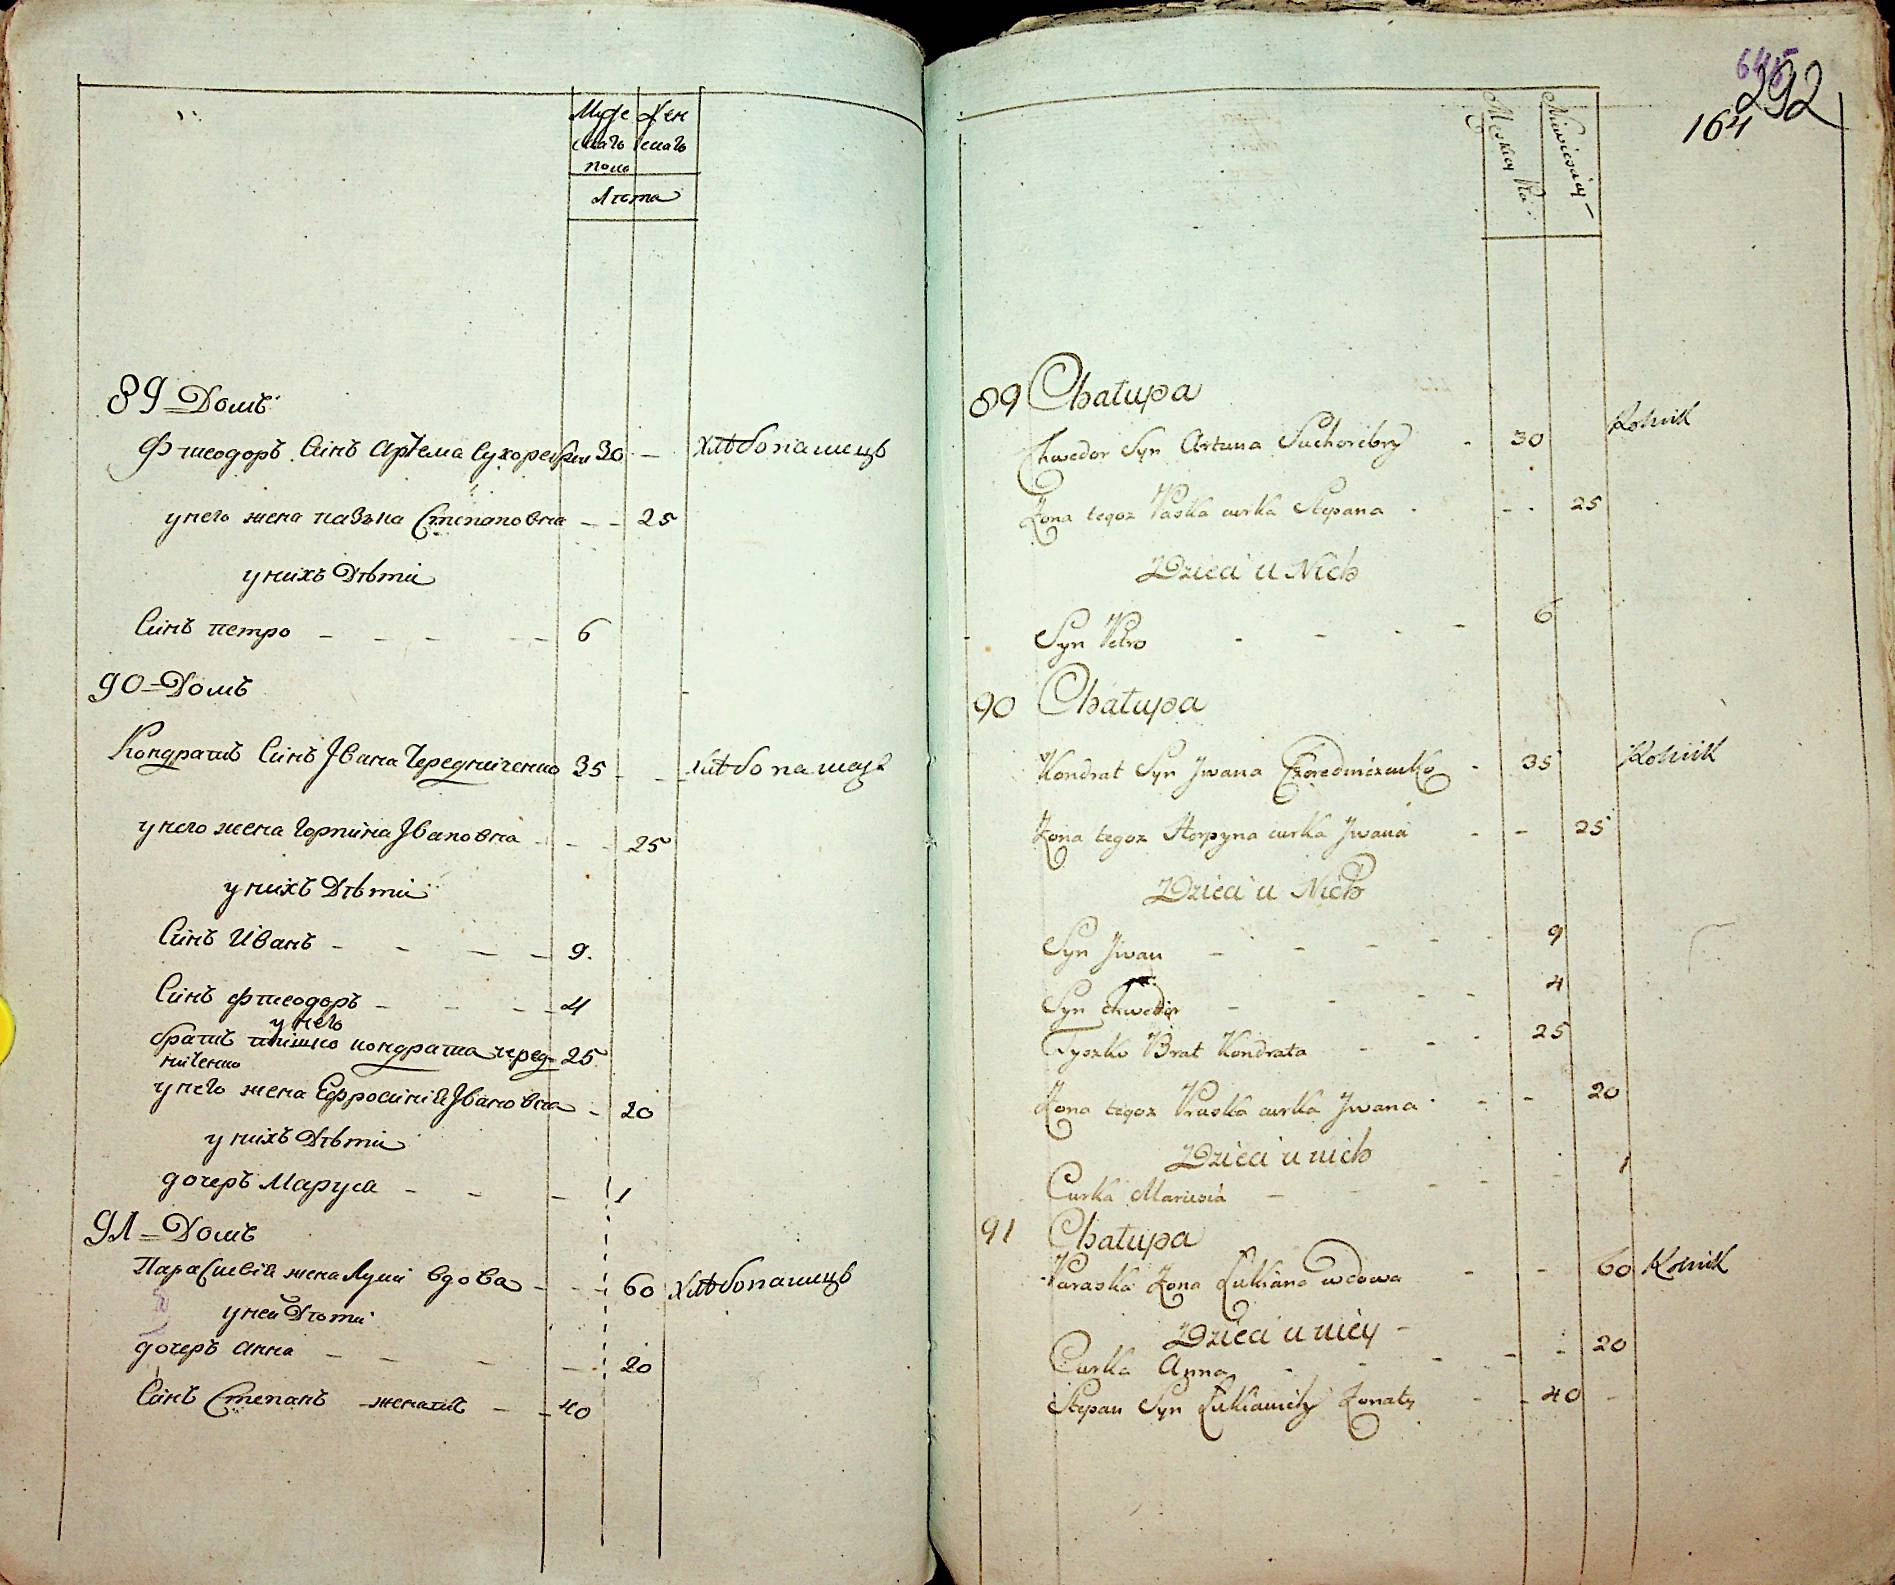 Муже Жен
скагѡ скагѡ
полѣ
Лѣта
89 = Домъ
Фтеодоръ Синъ Артема Сухоребрии 30 — Хлѣбопашецъ
у него жена пазъка Степановна — — 25
у нихъ Дѣти
Синъ петро — — — — 6
90 = Домъ
Кондратъ Синъ Iвана Чередниченко 35 — — хлѣбопашецъ
у него жена Горпина Iвановна — — 25
у нихъ Дѣти
Синъ Иванъ — — — — 9.
Синъ фтеодоръ — — — 4
у него
братъ тишко кондрата черед= 25
ниченко
у него жена Ефросиния Iвановна — 20
у нихъ Дѣти
дочеръ Маруся — — — 1
91 = Домъ
Параскивия жена Луки вдова — — 60 хлѣбопашецъ
у ней Дѣти
дочеръ анна — — — — 20
Синъ Степанъ — женатъ — — 40
645
292
164
Męskiey Płci
Niewieściey —
89 Chałupa
Chwedor Syn Artema Suchorebry - 30 Rolnik
Żona tegoz Paska curka Stepana - - - 25
Dzieci u Nich
Syn Petro - - - - 6
90 Chałupa
Kondrat Syn Jwana Czeredniczenko - 35 Rolnik
Żona tegoz Horpyna curka Jwana - - 25
Dzieci u Nich
Syn Jwan - - - - 9
Syn Chwedor - - - - 4
Tyszko Brat Kondrata - - - 25
Żona tegoz Pruska curka Jwana - - - 20
Dzieci u nich
Curka Marusia - - - - 1
91 Chałupa
Paraska Żona Łukiana wdowa - - 60 Rolnik
Dzieci u niey -
Curka Anna - - - - - 20
Stepan Syn Łukianichy Żonaty - - 40 -